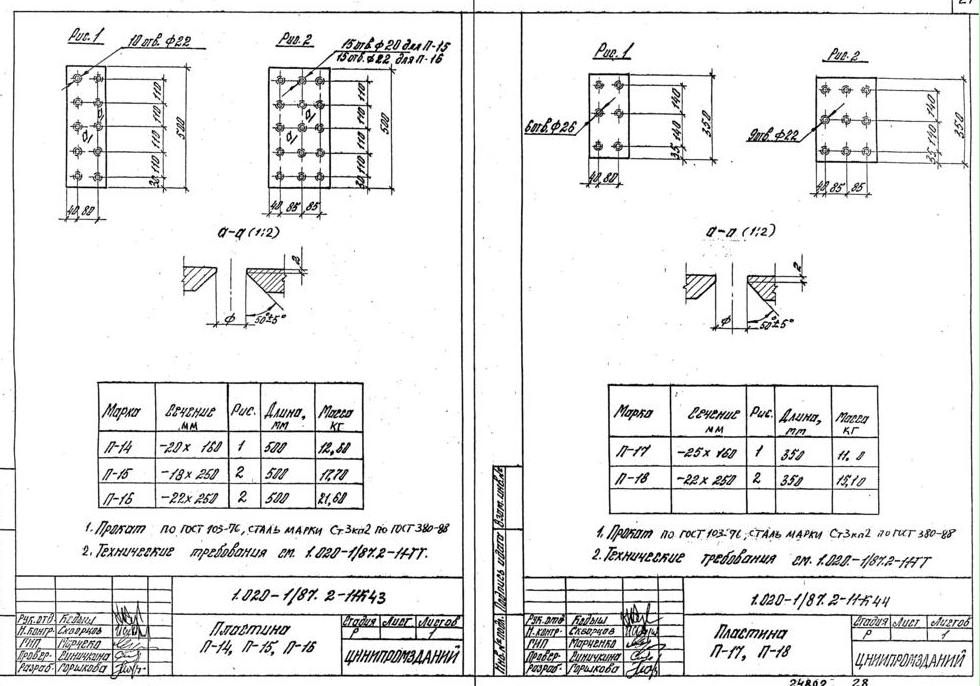 Рис. 1
10 отв. ф22
Рис. 2
15 отв. ф 20 для П-15
15 отв. ф22 для П-16
110
110
110
110
30
500
40 80
а
а
110
110
110
110
30
500
40 85 85
а-а (1:2)
2
ф
50°±5°
Марка
Сечение мм
Рис.
Длина, мм
Масса кг
П-14 -20 х 160 1 500 12,60
П-15 -18 х 250 2 500 17,70
П-16 -22 х 250 2 500 21,60
1. Прокат по ГОСТ 103-76, сталь марки Ст3кп2 по ГОСТ 380-88
2. Технические требования см. 1.020-1/87.2-1НТТ.
1.020-1/87. 2-1НК43
Рук.отд Кодыш
Н.контр Скворцов
ГИП Марченко
Провер. Риничкина
Разраб. Горькова
Пластина
П-14, П-15, П-16
Стадия Лист Листов
Р 1
ЦНИИПРОМЗДАНИЙ
Рис. 1
6 отв. ф26
140
140
35
350
40 80
Рис. 2
9 отв. ф22
140
140
35
350
40 85 85
а-а (1:2)
2
ф
50°±5°
Марка
Сечение мм
Рис.
Длина, мм
Масса кг
П-17 -25 х 160 1 350 11.0
П-18 -22 х 250 2 350 15,10
1. Прокат по ГОСТ 103-76, сталь марки Ст3кп2 по ГОСТ 380-88
2. Технические требования см. 1.020-1/87.2-1НТТ
Инв.№ подл. Подпись и дата Взам. инв.№
1.020-1/87. 2-1НК44
Рук.отд Кодыш
Н.контр Скворцов
ГИП Марченко
Провер. Риничкина
Разраб. Горькова
Пластина
П-17, П-18
Стадия Лист Листов
Р 1
ЦНИИПРОМЗДАНИЙ
24802 28